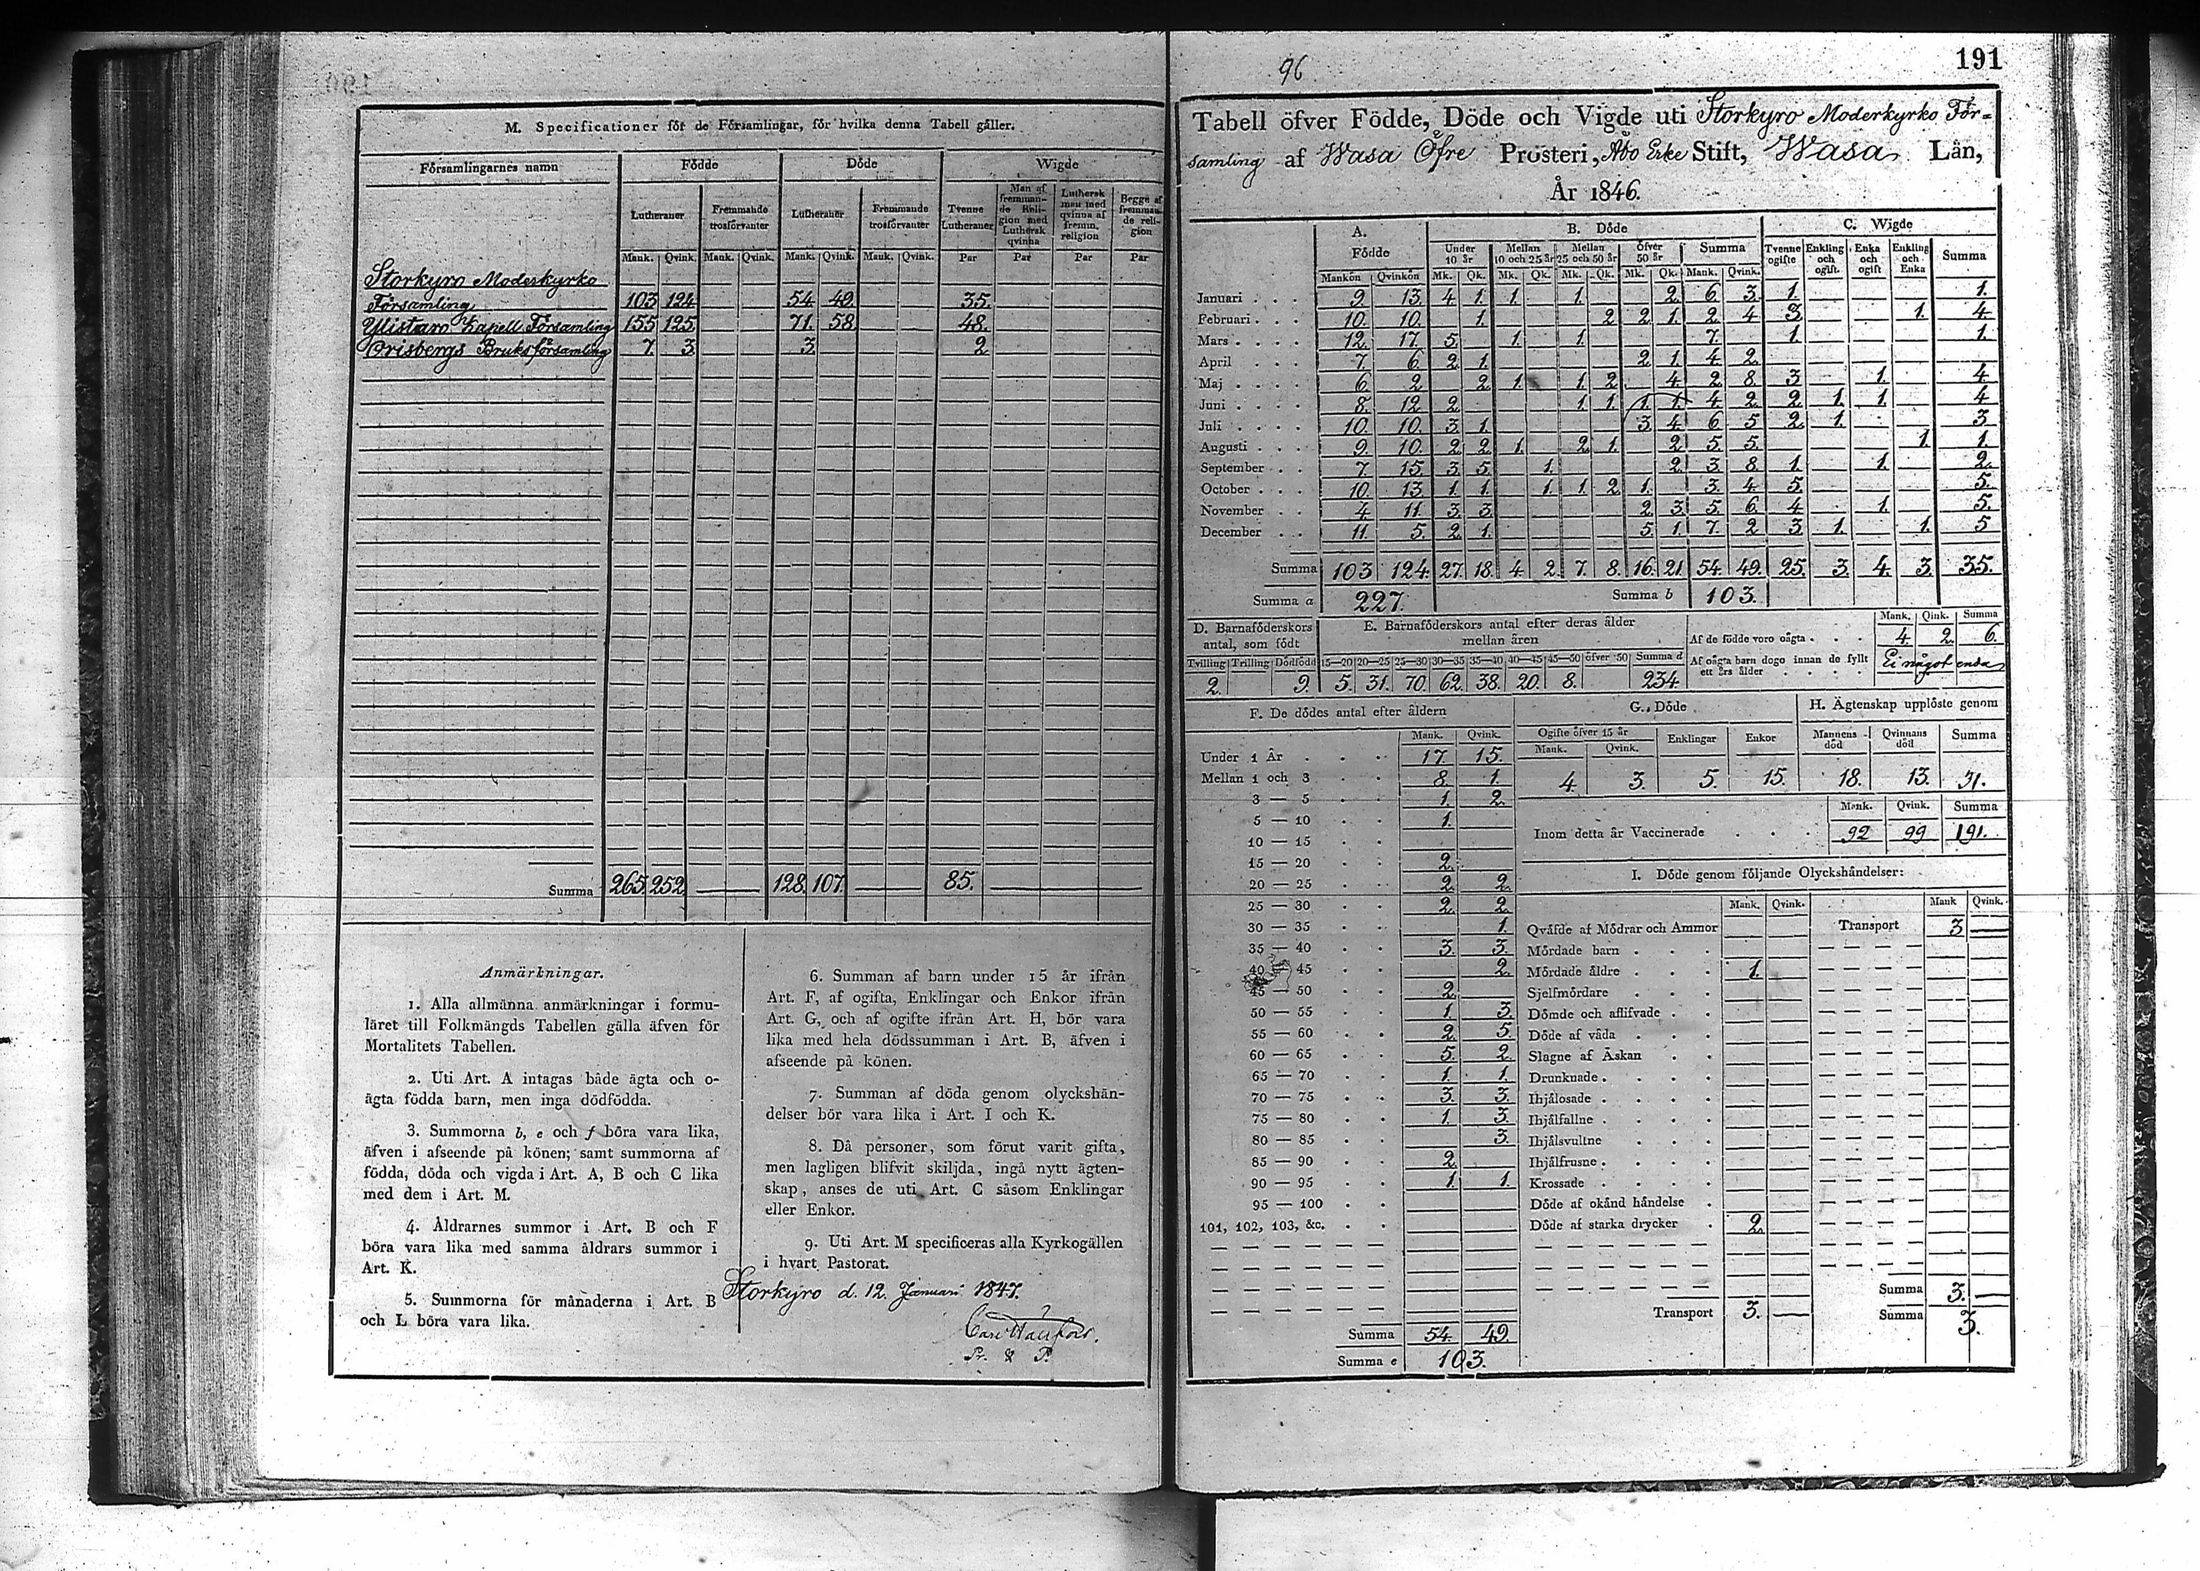 M. Specificationer för de Församlingar, för hvilka denna Tabell gäller.
Församlingarnes namn | Födde | Döde | Wigde
Lutheraner | Fremmande trosförvanter | Lutheraner | Fremmande trosförvanter | Tvenne Lutheraner | Man af fremmande Religion med Luthersk qvinna | Luthersk man med qvinna af fremm. religion | Begge af fremmande religion
Mank. Qvink. Mank. Qvink. Mank. Qvink. Mank. Qvink. Par Par Par Par
Storkyro Moderkyrko
Församling 103 124 54. 49. 35.
Ylistaro Kapell Församling 155 125. 71. 58. 48.
Orisbergs Bruksförsamling 7. 3. 3. 2.
Summa 265. 252. — 128. 107. — 85. —
Anmärkningar.
1. Alla allmänna anmärkningar i formu-
läret till Folkmängds Tabellen gälla äfven för
Mortalitets Tabellen.
2. Uti Art. A intagas både ägta och o-
ägta födda barn, men inga dödfödda.
3. Summorna b, e och f böra vara lika,
äfven i afseende på könen; samt summorna af
födda, döda och vigda i Art. A, B och C lika
med dem i Art. M.
4. Åldrarnes summor i Art. B och F
böra vara lika med samma åldrars summor i
Art. K.
5. Summorna för månaderna i Art. B
och L böra vara lika.
6. Summan af barn under 15 år ifrån
Art. F, af ogifta, Enklingar och Enkor ifrån
Art. G, och af ogifte ifrån Art. H, bör vara
lika med hela dödssumman i Art. B, äfven i
afseende på könen.
7. Summan af döda genom olyckshän-
delser bör vara lika i Art. I och K.
8. Då personer, som förut varit gifta,
men lagligen blifvit skiljda, ingå nytt ägten-
skap, anses de uti Art. C såsom Enklingar
eller Enkor.
9. Uti Art. M specificeras alla Kyrkogällen
i hvart Pastorat.
Storkyro d. 12. Januari 1847.
Carl
Pr. & P.
96
191
Tabell öfver Födde, Döde och Vigde uti Storkyro Moderkyrko För=
samling af Wasa Öfre Prosteri, Åbo Erke Stift, Wasa Län,
År 1846.
A. Födde | B. Döde | C. Wigde
Under 10 år | Mellan 10 och 25 år | Mellan 25 och 50 år | Öfver 50 år | Summa | Tvenne ogifte | Enkling och ogift. | Enka och ogift | Enkling och Enka | Summa
Mankön Qvinkön Mk. Qk. Mk. Qk. Mk. Qk. Mk. Qk. Mank. Qvink.
Januari 9. 13. 4. 1. 1. 1. 2. 6. 3. 1. 1.
Februari 10. 10. 1. 2. 2. 1. 2. 4. 3. 1. 4.
Mars 12. 17. 5. 1. 1. 7. 1. 1.
April 7. 6. 2. 1. 2. 1. 4. 2.
Maj 6. 2. 2. 1. 1. 2. 4. 2. 8. 3. 1. 4.
Juni 8. 12. 2. 1. 1. 1. 1. 4. 2. 2. 1. 1. 4.
Juli 10. 10. 3. 1. 3. 4. 6. 5. 2. 1. 3.
Augusti 9. 10. 2. 2. 1. 2. 1. 2. 5. 5. 1. 1.
September 7. 15. 3. 5. 1. 2. 3. 8. 1. 1. 2.
October 10. 13. 1. 1. 1. 1. 2. 1. 3. 4. 5. 5.
November 4. 11. 3. 3. 2. 3. 5. 6. 4. 1. 5.
December 11. 5. 2. 1. 5. 1. 7. 2. 3. 1. 1. 5
Summa 103 124. 27. 18. 4. 2. 7. 8. 16. 21 54. 49. 25. 3. 4. 3. 35.
Summa a 227. Summa b 103.
D. Barnaföderskors antal, som födt
Tvilling Trilling Dödfödd
2. 9.
E. Barnaföderskors antal efter deras ålder mellan åren
15—20 20—25 25—30 30—35 35—40 40—45 45—50 öfver 50 Summa d
5. 31. 70. 62. 38. 20. 8. 234.
Mank. Qink. Summa
Af de födde voro oägta 4. 2. 6.
Af oägta barn dogo innan de fyllt ett års ålder Ei något enda
F. De dödes antal efter åldern
Mank. Qvink.
Under 1 År 17. 15.
Mellan 1 och 3 8. 1.
3 — 5 1. 2.
5 — 10 1.
10 — 15
15 — 20 2.
20 — 25 2. 2.
25 — 30 2. 2.
30 — 35 1.
35 — 40 3. 3.
40 — 45 2.
45 — 50 2.
50 — 55 1. 3.
55 — 60 2. 5.
60 — 65 5. 2.
65 — 70 1. 1.
70 — 75 3. 3.
75 — 80 1. 3.
80 — 85 3.
85 — 90 2.
90 — 95 1. 1.
95 — 100
101, 102, 103, &c.
Summa 54. 49.
Summa e 103.
G. Döde
Ogifte öfver 15 år | Enklingar | Enkor
Mank. Qvink.
4. 3. 5. 15.
H. Ägtenskap upplöste genom
Mannens död | Qvinnans död | Summa
18. 13. 31.
Mank. Qvink. Summa
Inom detta år Vaccinerade 92 99 191.
I. Döde genom följande Olyckshändelser:
Mank. Qvink. Mank Qvink.
Qväfde af Mödrar och Ammor
Mördade barn
Mördade äldre 1.
Sjelfmördare
Dömde och aflifvade
Döde af våda
Slagne af Åskan
Drunknade
Ihjälosade
Ihjälfallne
Ihjälsvultne
Ihjälfrusne
Krossade
Döde af okänd händelse
Döde af starka drycker 2.
Transport 3. —
Transport 3 —
Summa 3. —
Summa 3.